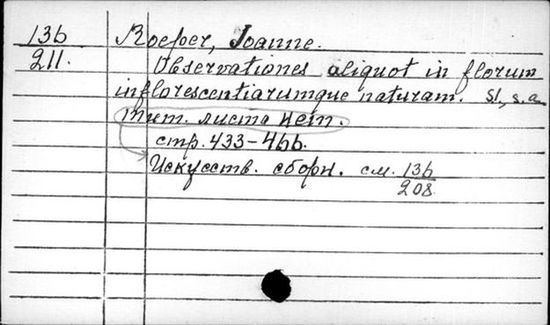 136 Roeper, Joanne.
211. Observationes aliquot in florum
inflorescentiarumque naturam. Sl., s.a.
тит. листа нет.
стр. 433-466.
Искусств. сборн. см. 136
208